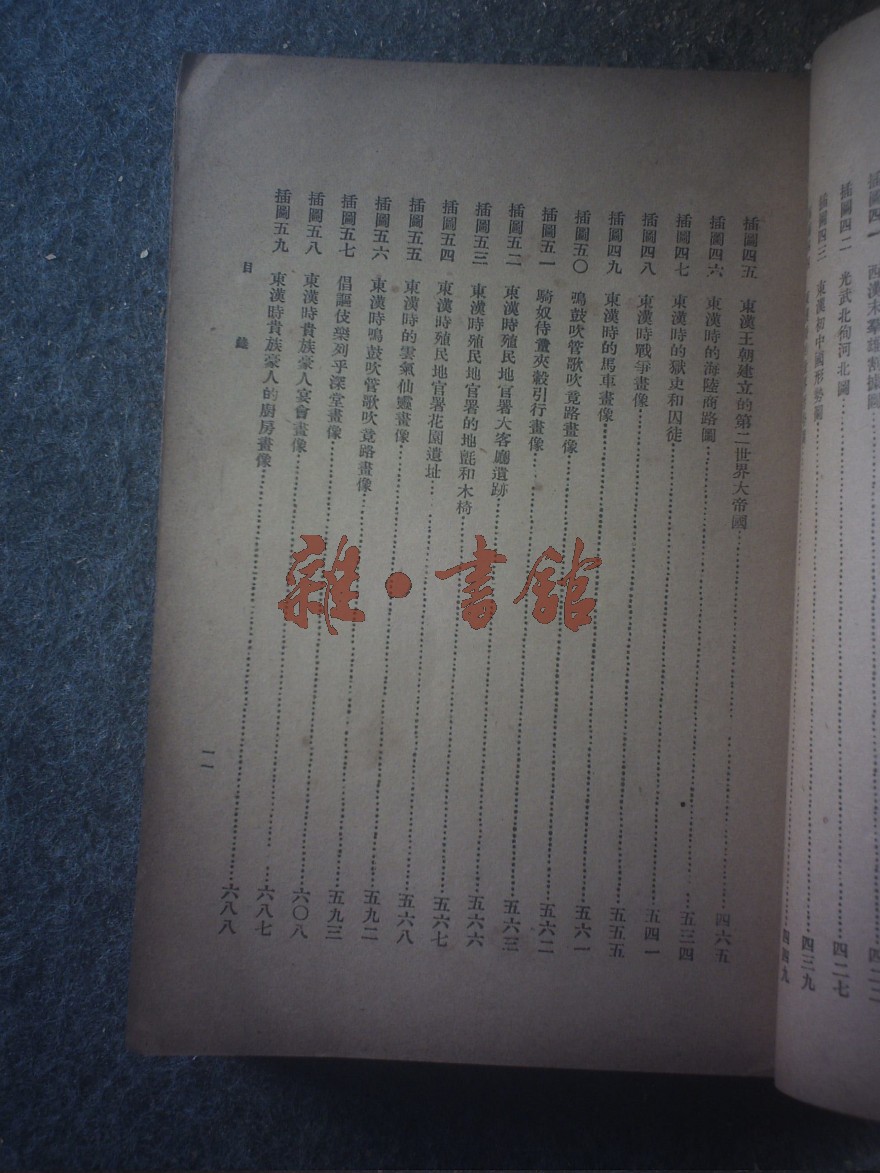 插圖四一　西漢末羣雄割據圖
插圖四二　光武北徇河北圖……四二七
插圖四三　東漢初中國形勢圖……四三九
四四九
插圖四五　東漢王朝建立的第二世界大帝國……四六五
插圖四六　東漢時的海陸商路圖……五三四
插圖四七　東漢時的獄吏和囚徒……五四一
插圖四八　東漢時戰爭畫像……五五五
插圖四九　東漢時的馬車畫像……五六一
插圖五〇　鳴鼓吹管歌吹竟路畫像……五六二
插圖五一　騎奴侍童夾轂引行畫像……五六三
插圖五二　東漢時殖民地官署大客廳遺跡……五六六
插圖五三　東漢時殖民地官署的地氈和木椅……五六七
插圖五四　東漢時殖民地官署花園遺址……五六八
插圖五五　東漢時的雲氣仙靈畫像……五九二
插圖五六　東漢時鳴鼓吹管歌吹竟路畫像……五九三
插圖五七　倡謳伎樂列乎深堂畫像……六〇八
插圖五八　東漢時貴族豪人宴會畫像……六八七
插圖五九　東漢時貴族豪人的廚房畫像……六八八
目錄
二
雜·書館